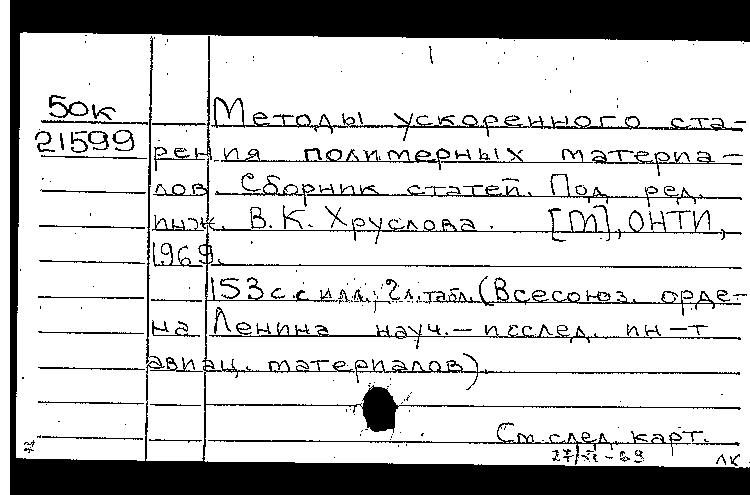 50к Методы ускоренного ста-
21599 рения полимерных материа-
лов. Сборник статей. Под ред.
инж. В.К. Хруслова. [М], ОНТИ,
1969.
153 с с илл.; 2 л. табл. (Всесоюз. орде-
на Ленина науч.-исслед. ин-т
авиац. материалов).
См. след. карт.
ЛК